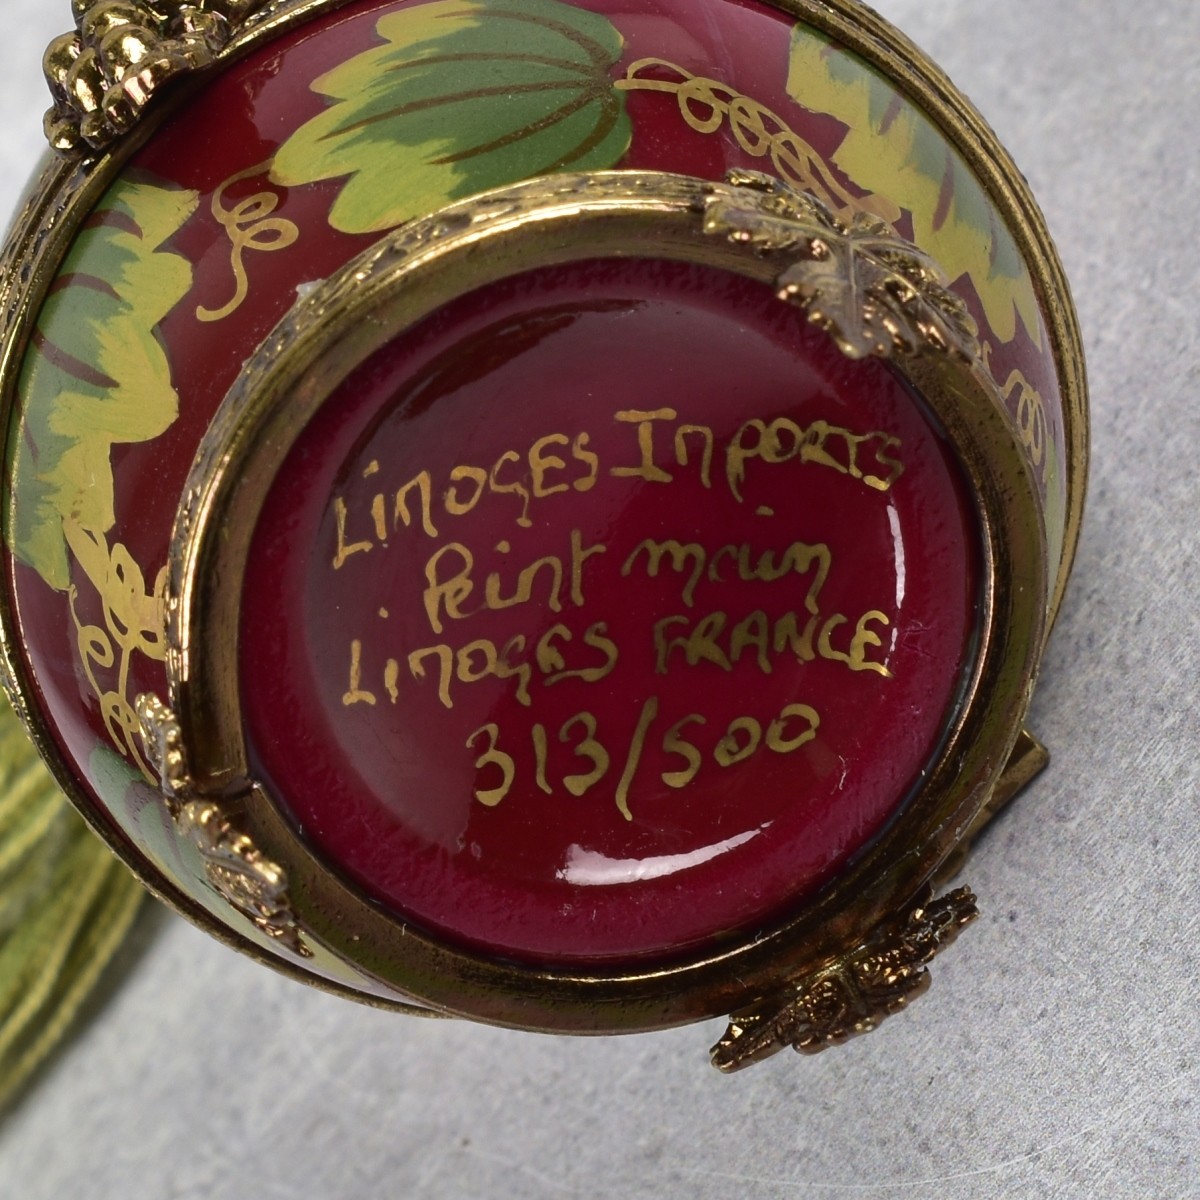 LiMOGES IMPORTS
Peint main
LiMOGES FRANCE
313/500